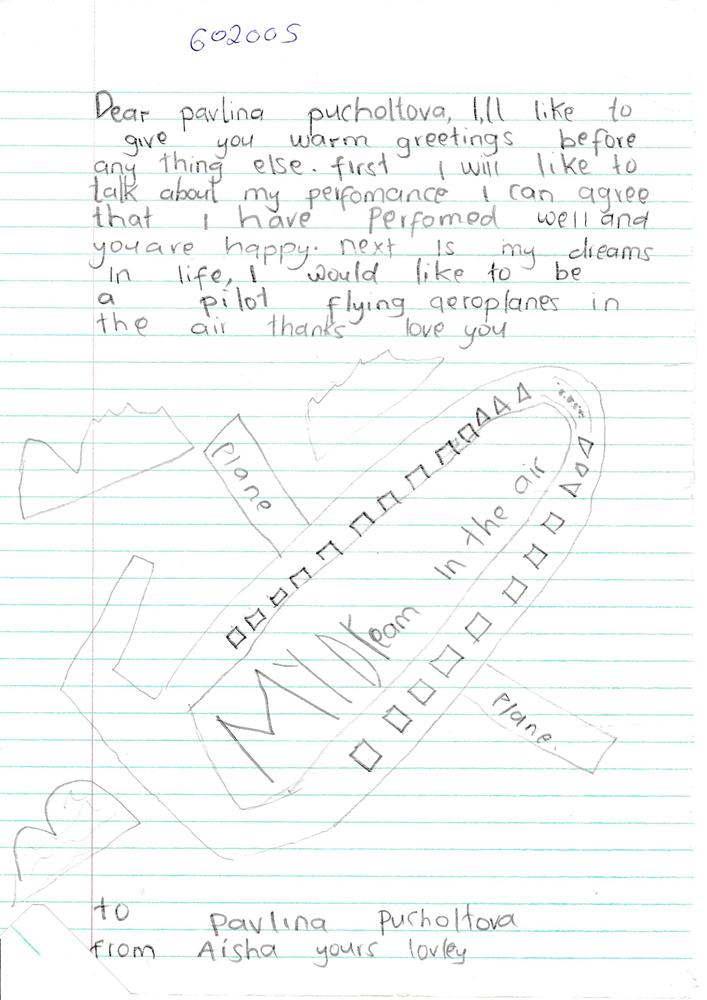 602005
Dear pavlina pucholtova, I,ll like to
give you warm greetings before
any thing else. first I will like to
talk about my perfomance I can agree
that I have Perfomed well and
you are happy. next is my dreams
In life, I would like to be
a pilot flying aeroplanes in
the air thanks love you
Plane
MY DReam In the air
Plane.
to pavlina pucholtova
from Aisha yours lovley